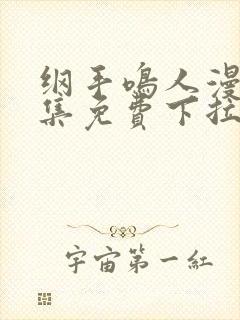 纲手鸣人漫
集免費下拉
宇宙第一紅